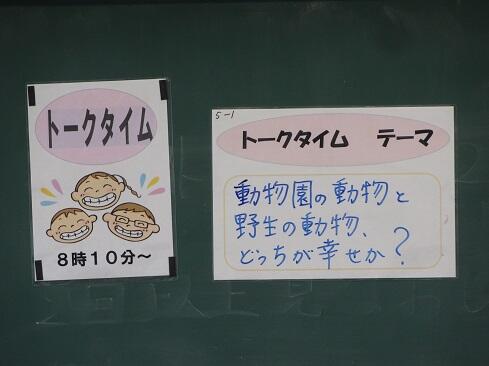 トークタイム
8時10分~
5-1
トークタイム テーマ
動物園の動物と
野生の動物、
どっちが幸せか?